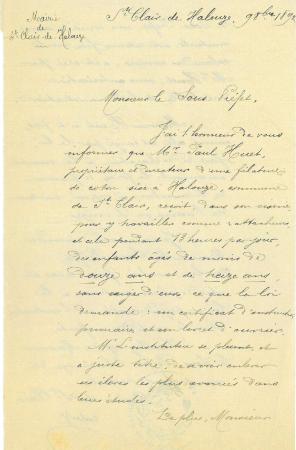 Mairie
de
St Clair de Halouze
St Clair de Halouze, 9 8bre 189
Monsieur le Sous-Préfet,
J'ai l'honneur de vous
informer que Mr Paul Huet,
propriétaire et directeur d'une filature
de coton sise à Halouze, commune
de St Clair, reçoit dans son usine
pour y travailler comme rattacheurs
et cela pendant 13 heures par jour,
des enfants âgés de moins de
douze ans et de treize ans,
sans exiger d'eux ce que la loi
demande : un certificat d'instruction
primaire et un livret d'ouvrier.
Mr L'instituteur se plaint, et
à juste titre, de se voir enlever
ses élèves les plus avancés dans
leurs études.
De plus, Monsieur